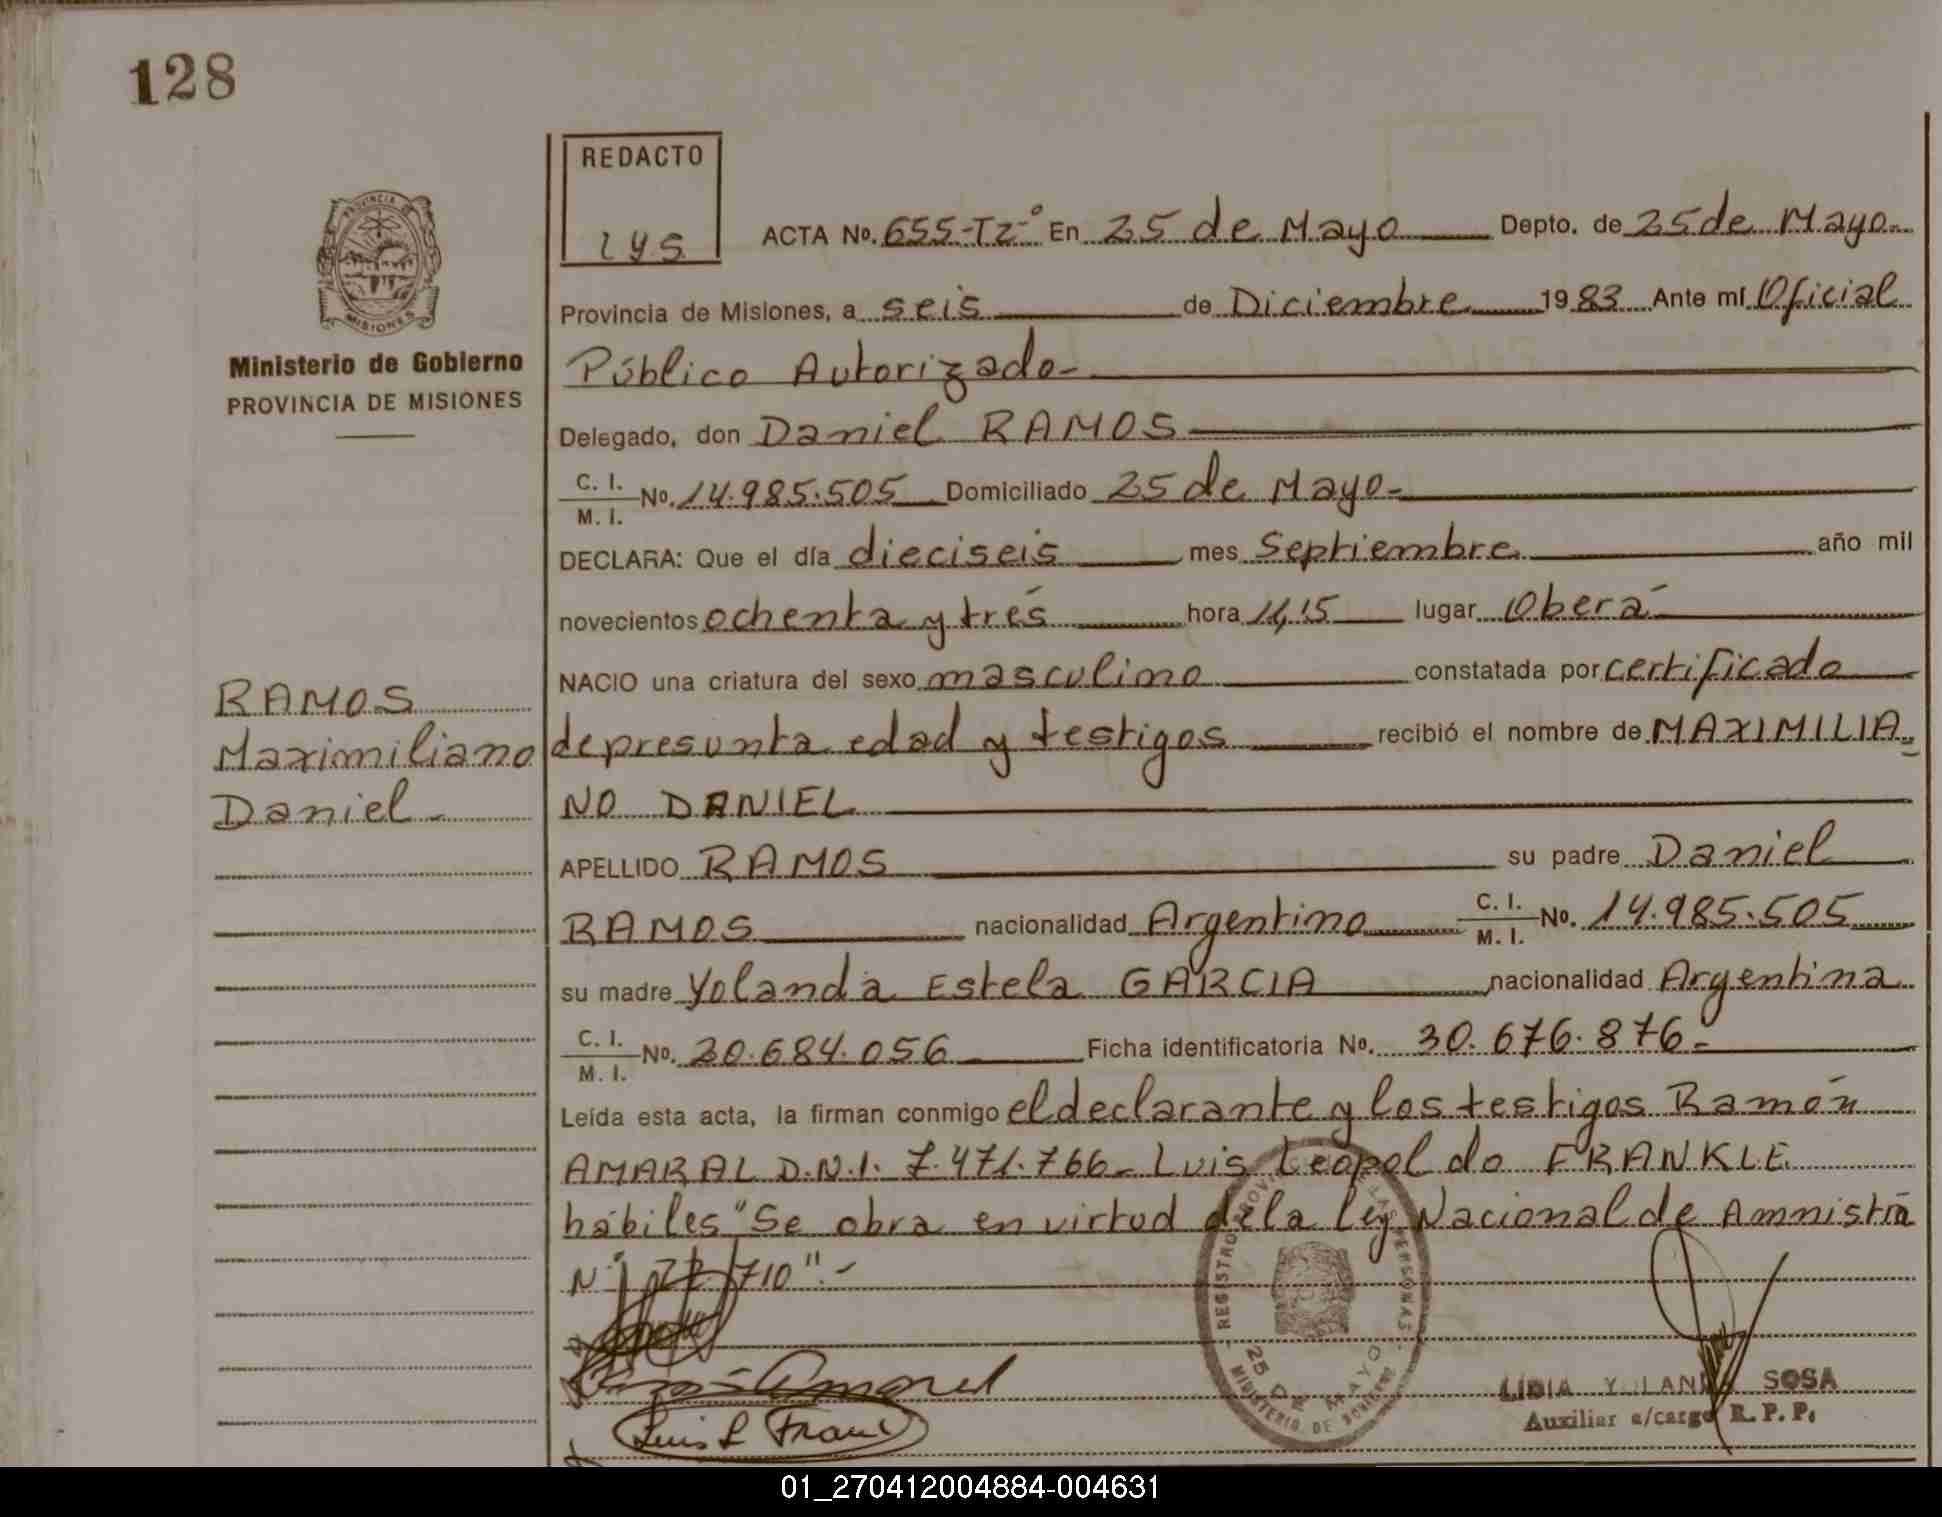 128
REDACTO
lys
PROVINCIA DE MISIONES
Ministerio de Gobierno
PROVINCIA DE MISIONES
ACTA No. 655-Tz-° En 25 de Mayo Depto. de 25 de Mayo
Provincia de Misiones, a seis de Diciembre 1983 Ante mí Oficial
Público Autorizado-
Delegado, don Daniel RAMOS
C. I. M. I. No. 14.985.505 Domiciliado 25 de Mayo-
DECLARA: Que el día dieciseis mes Septiembre año mil
novecientos ochenta y trés hora 11,15 lugar Oberá
NACIO una criatura del sexo masculino constatada por certificado
de presunta edad y testigos recibió el nombre de MAXIMILIA
NO DANIEL
RAMOS
Maximiliano
Daniel-
APELLIDO RAMOS su padre Daniel
RAMOS nacionalidad Argentino C. I. M. I. No. 14.985.505
su madre Yolanda Estela GARCIA nacionalidad Argentina
C. I. M. I. No. 20.684.056 Ficha identificatoria No. 30.676.876-
Leída esta acta, la firman conmigo el declarante y los testigos Ramón
AMARAL D.N.I. 7.471.766- Luis Leopoldo FRANKLE
hábiles "Se obra en virtud de la ley Nacional de Amnistía
N° 22.710".-
REGISTRO PROVINCIAL DE LAS PERSONAS
25 DE MAYO
MINISTERIO DE GOBIERNO
Luis L Frank
LIDIA YOLANDA SOSA
Auxiliar a/cargo R. P. P.
01_270412004884-004631